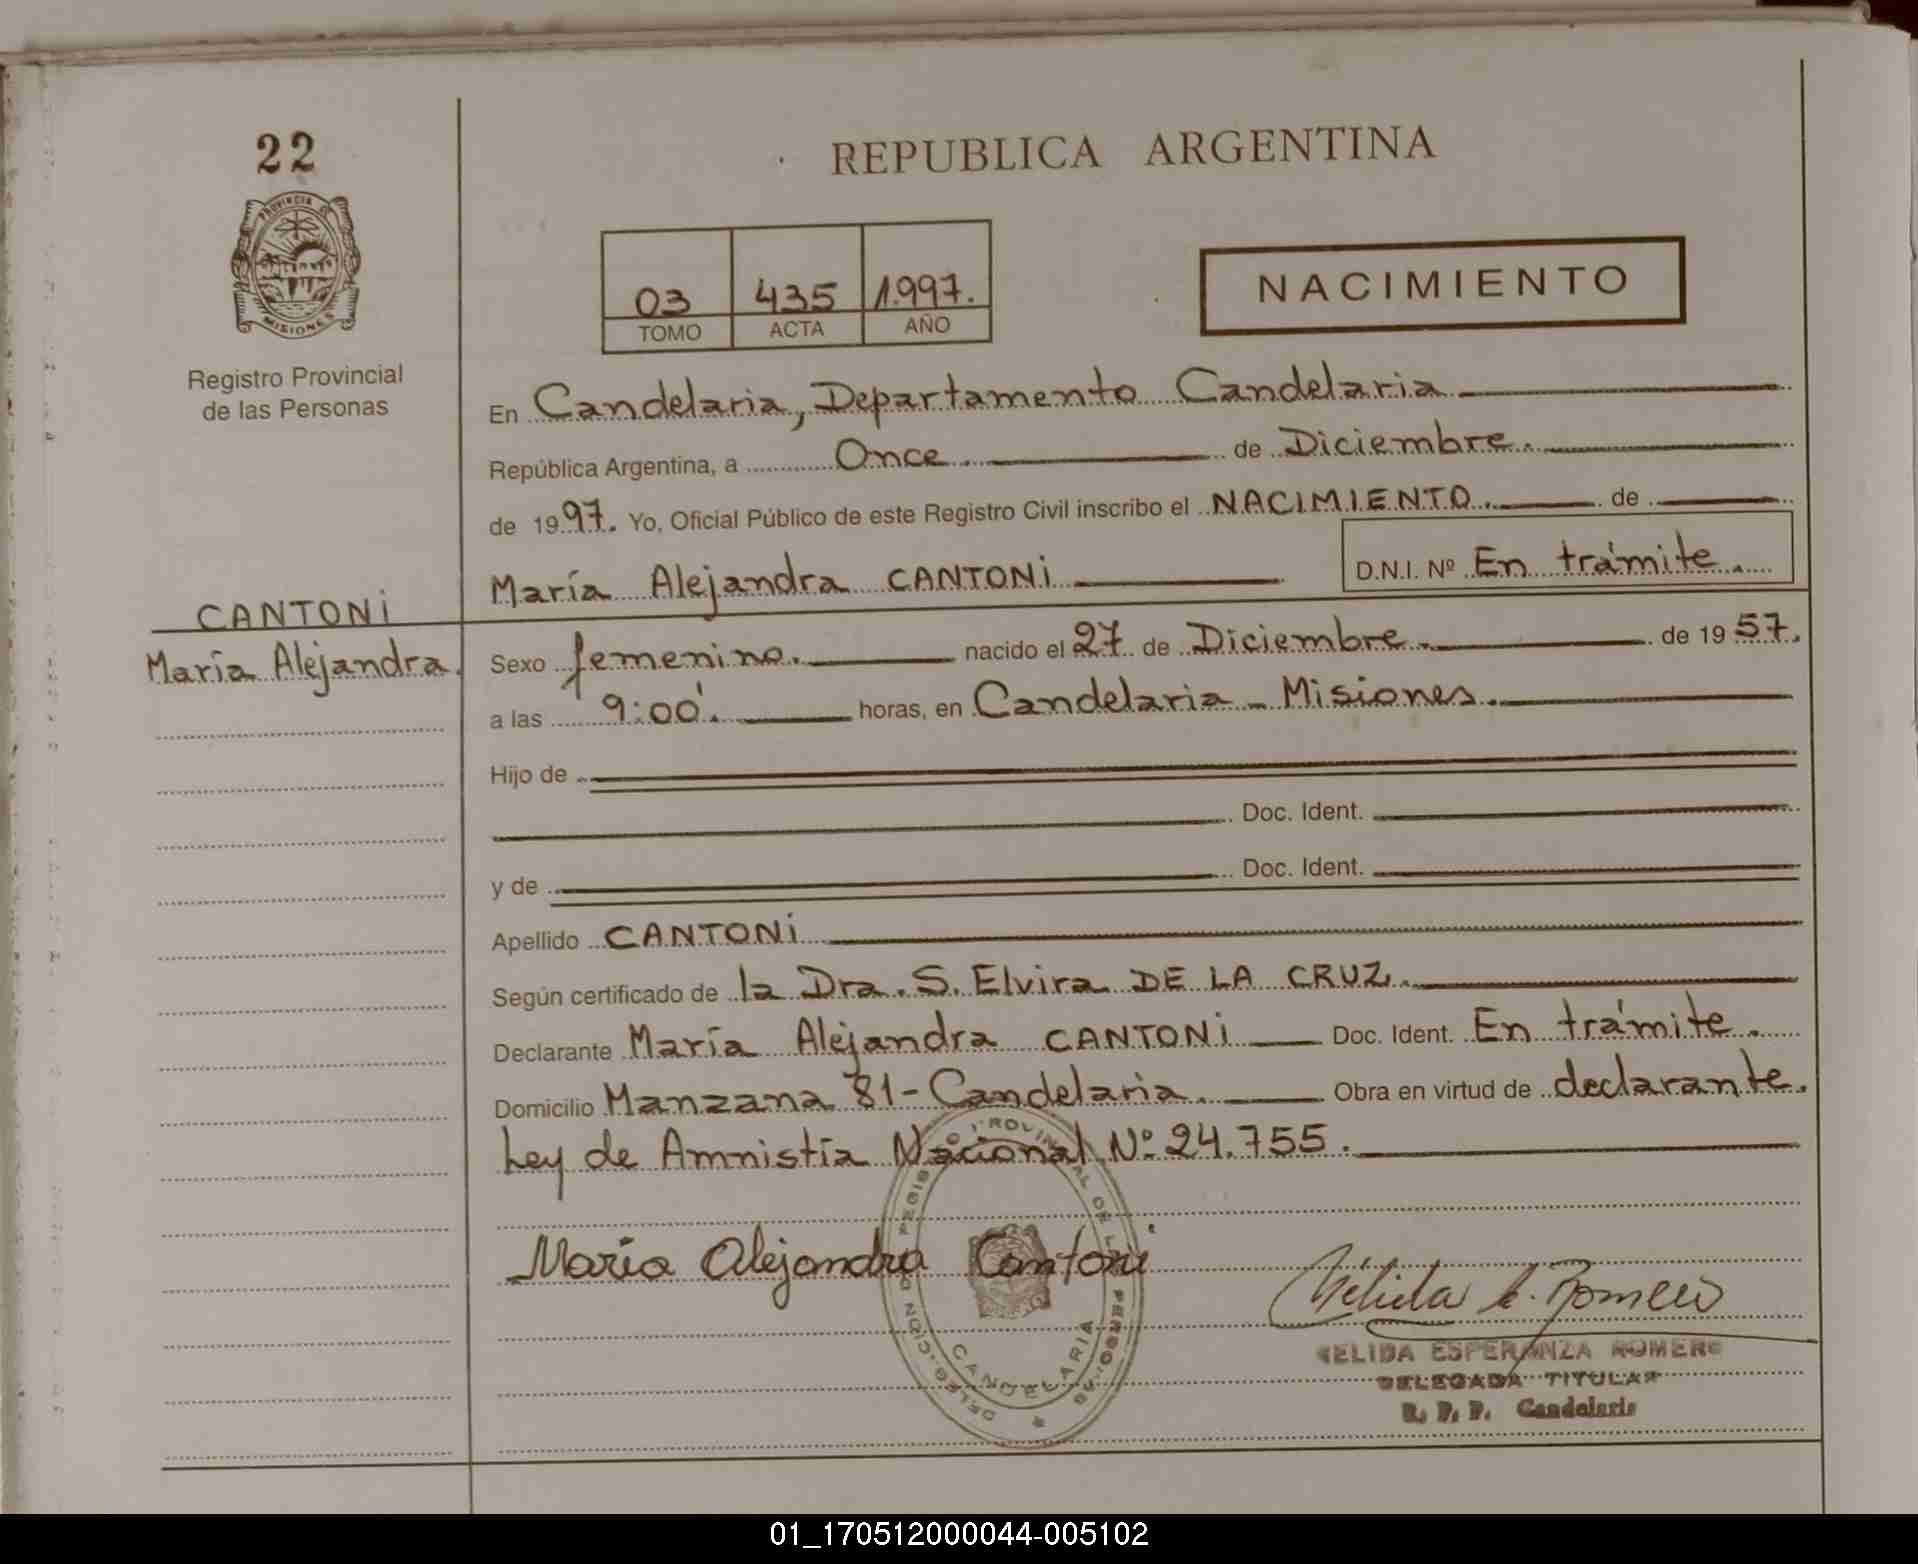 22
PROVINCIA DE
MISIONES
Registro Provincial
de las Personas
CANTONi
María Alejandra.
REPUBLICA ARGENTINA
03 435 1.997.
TOMO ACTA AÑO
NACIMIENTO
En Candelaria, Departamento Candelaria
República Argentina, a Once de Diciembre.
de 1997. Yo, Oficial Público de este Registro Civil inscribo el NACIMIENTO. de
María Alejandra CANTONi D.N.I. Nº En trámite.
Sexo femenino. nacido el 27 de Diciembre. de 1957.
a las 9:00'. horas, en Candelaria - Misiones.
Hijo de
Doc. Ident.
y de Doc. Ident.
Apellido CANTONi
Según certificado de la Dra. S. Elvira DE LA CRUZ.
Declarante María Alejandra CANTONi Doc. Ident. En trámite.
Domicilio Manzana 81 - Candelaria. Obra en virtud de declarante.
Ley de Amnistía Nacional Nº 24.755.
María Alejandra Cantoni
CANDELARIA
Nélida E. Romero
NELIDA ESPERANZA ROMERO
DELEGADA TITULAR
R. P. P. Candelaria
01_170512000044-005102